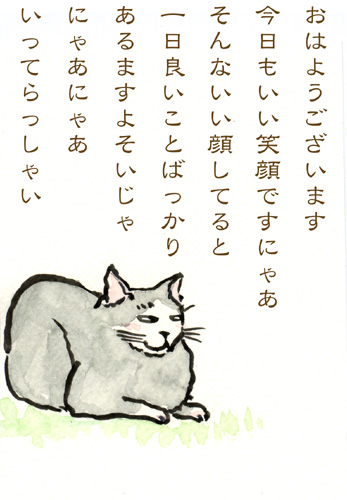 おはようございます
今日もいい笑顔ですにゃあ
そんないい顔してると
一日良いことばっかり
あるますよそいじゃ
にゃあにゃあ
いってらっしゃい